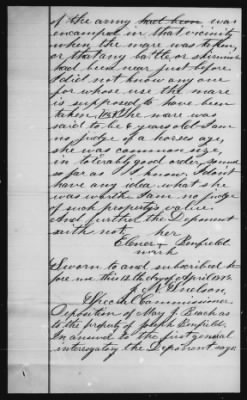 of the army had been was
encamped in that vicinity
when the mare was taken,
or that any battle or skirmish
had been near just before
I did not know any one
for whose use the mare
is supposed to have been
taken. The mare was
said to be 6 years old I am
no judge of a horses age,
she was common size,
in tolerably good order, sound
so far as I know, I dont
have any idea what she
was worth. I am no judge
of such property's value.
And further the Deponent
saith not. her
Elenor + Penfield.
mark
Sworn to and subscribed be
fore me this 12th day of April 1878
J. N. Snelson,
Special Commissioner.
Deposition of May J. Beach as
to the property of Joseph Penfield.
In answer to the first general
interrogatory the Deponent says